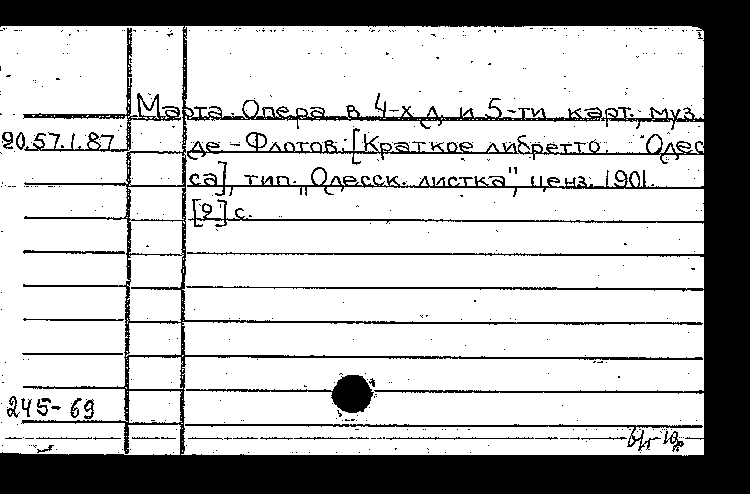 Марта. Опера в 4-х д. и 5-ти карт., муз.
20.57.1.87 де-Флотов. [Краткое либретто. Одес
са], тип. „Одесск. листка", ценз. 1901.
[2] с.
245-69